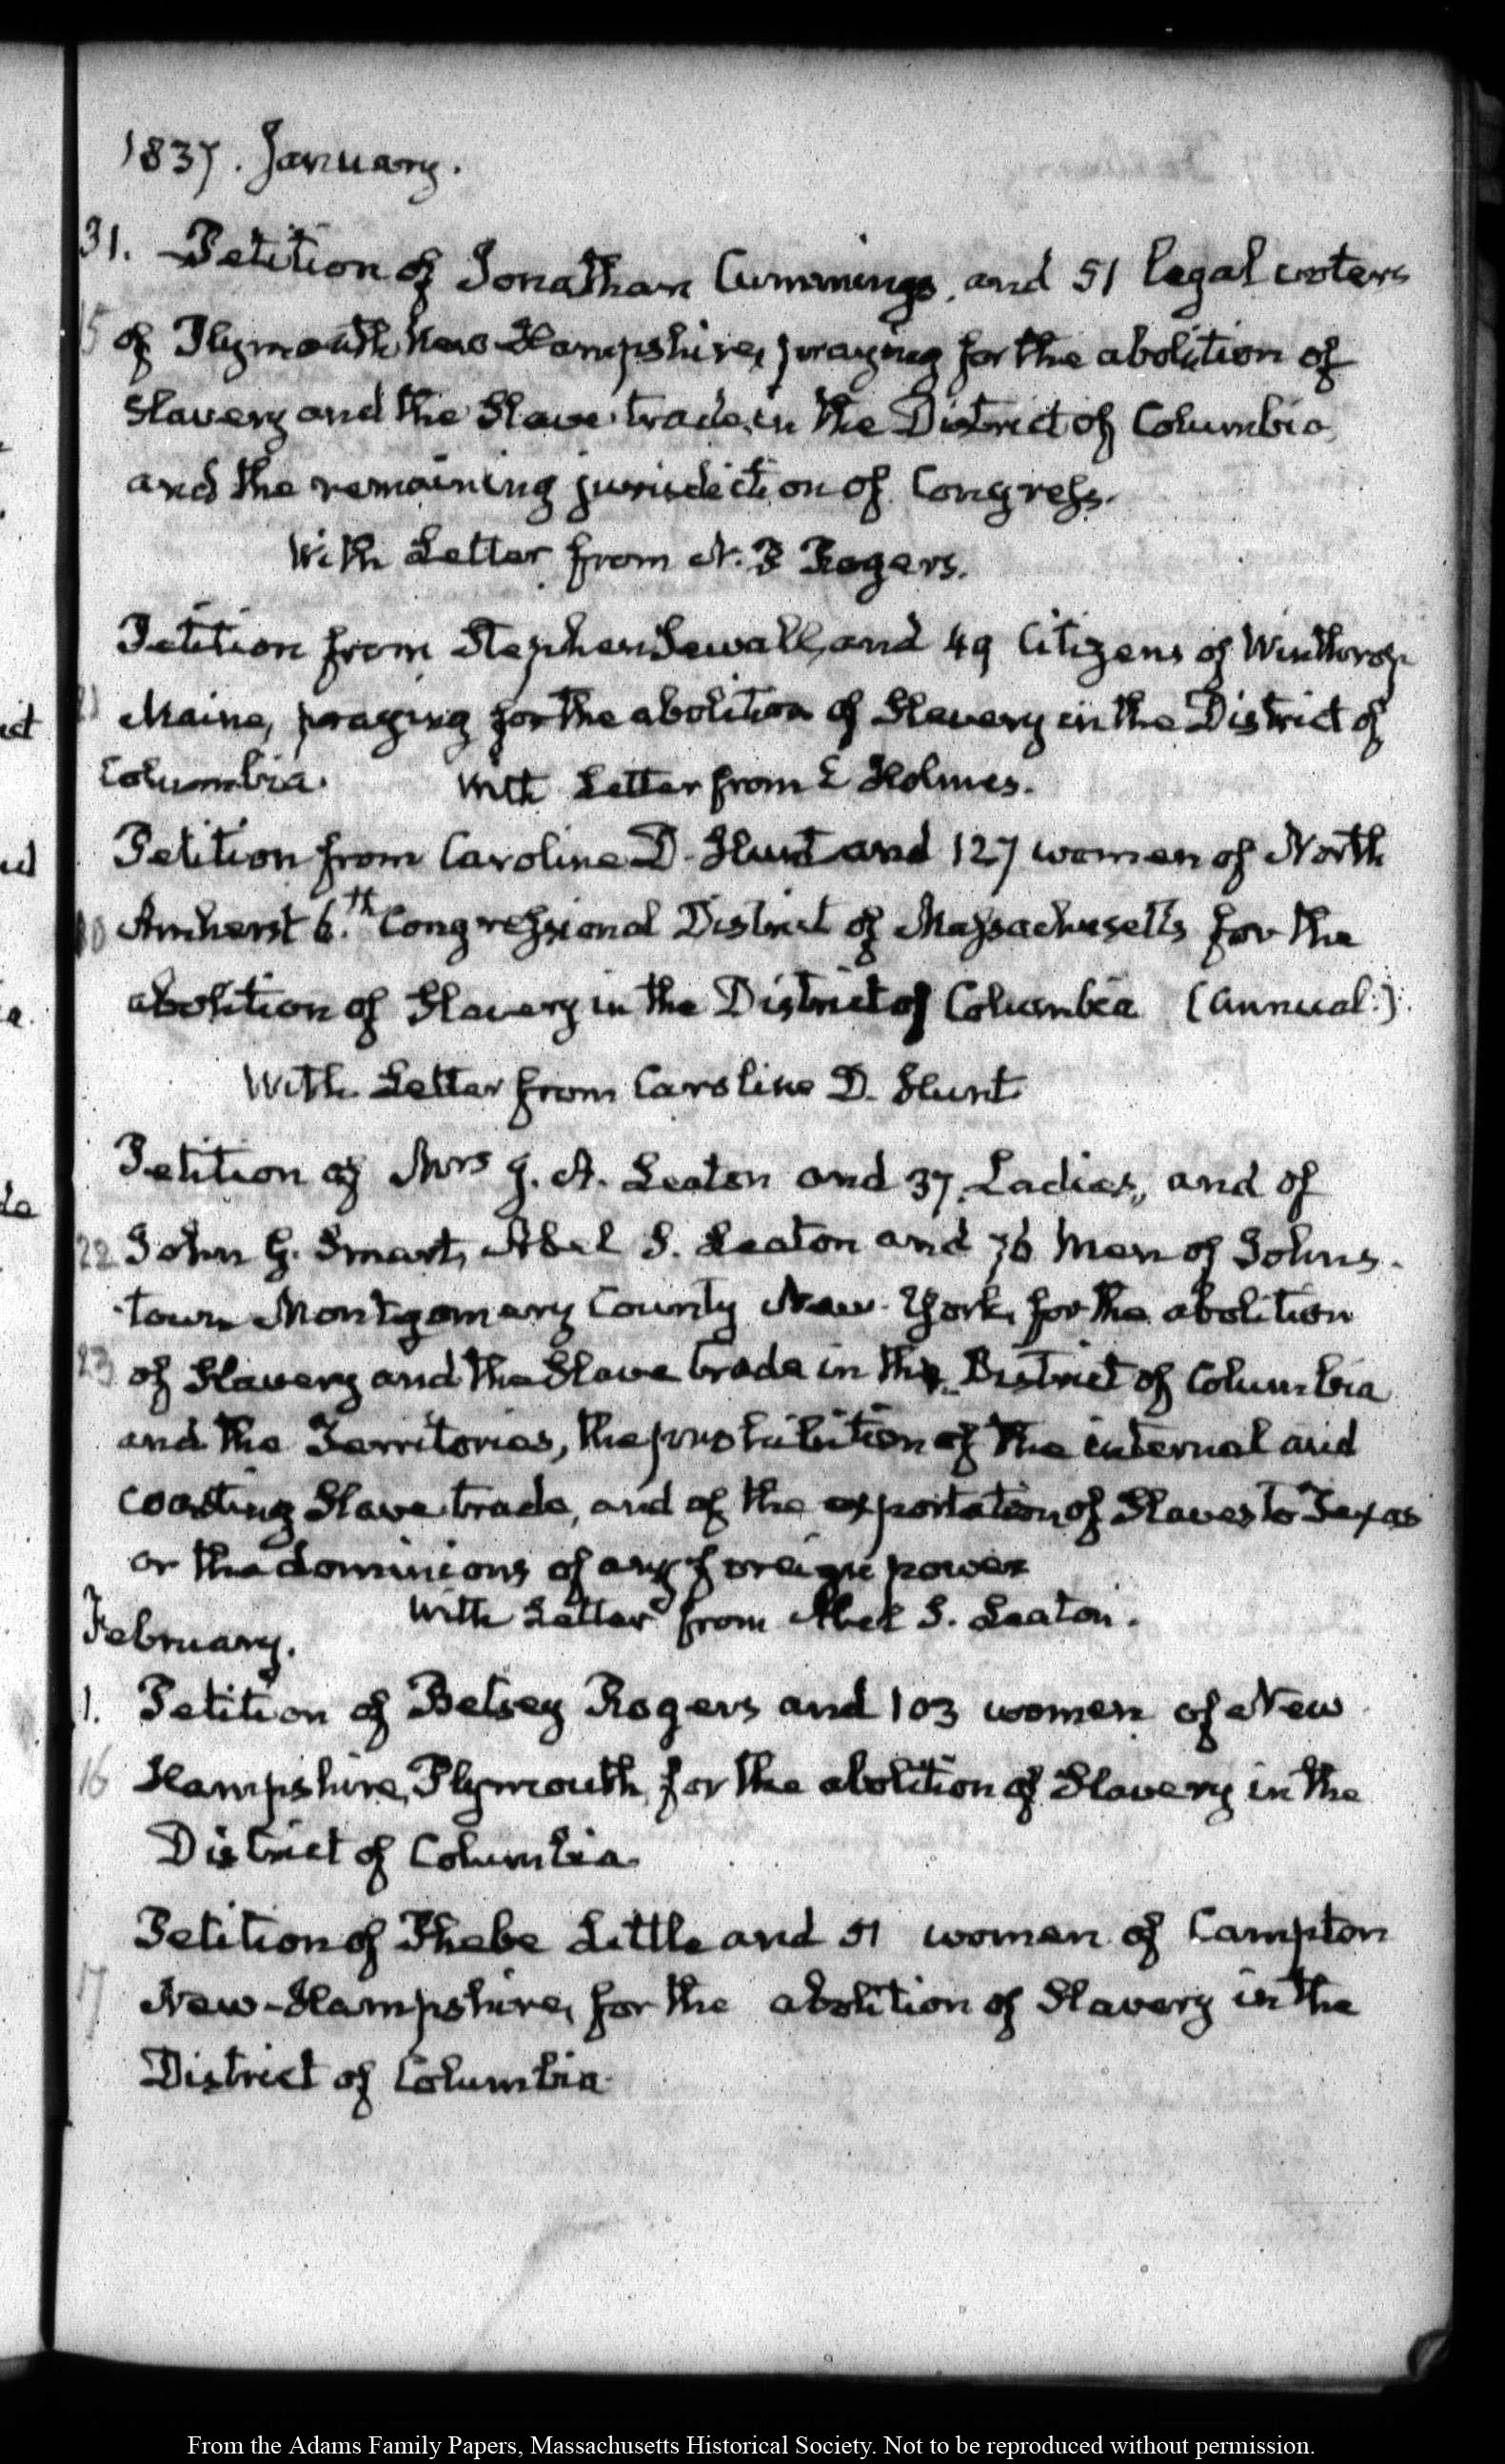 1837. January.
31. Petition of Jonathan Cummings, and 51 legal voters
15 of Plymouth New-Hampshire, praying for the abolition of
Slavery and the Slave trade, in the District of Columbia
and the remaining jurisdiction of Congress.
With Letter from N. P Rogers.
Petition from Stephen Sewall, and 49 Citizens of Winthrop
21 Maine, praying for the abolition of Slavery in the District of
Columbia. With Letter from E Holmes.
Petition from Caroline D. Hunt and 127 women of North
Amherst 6.th Congressional District of Massachusetts for the
abolition of Slavery in the District of Columbia (annual.)
With Letter from Caroline D. Hunt
Petition of Mrs J. A. Leaton and 37 Ladies, and of
22 John G. Smart, Abel S. Leaton and 76 Men of Johns-
town Montgomery County New-York, for the abolition
23 of Slavery and the Slave trade in the District of Columbia
and the Territories, the prohibition of the internal and
coasting Slave trade, and of the exportation of Slaves to Texas
or the dominions of any foreign power
With Letter from Abel S. Leaton.
February.
1. Petition of Betsey Rogers and 103 women of New
16 Hampshire, Plymouth, for the abolition of Slavery in the
District of Columbia
Petition of Phebe Little and 51 women of Campton
17 New-Hampshire, for the abolition of Slavery in the
District of Columbia
From the Adams Family Papers, Massachusetts Historical Society. Not to be reproduced without permission.